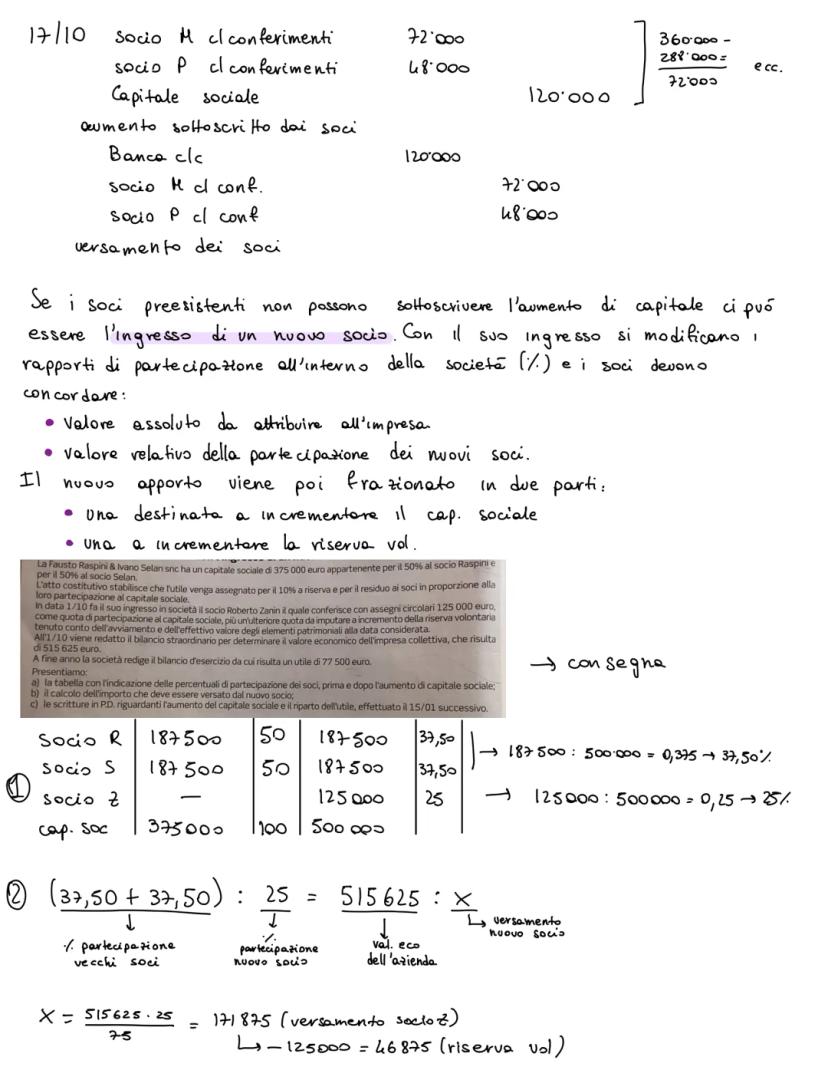 17/10 socio M c/conferimenti 72'000
socio P c/conferimenti 48'000
Capitale sociale 120'000
360'000 -
288'000 =
72'000
ecc.
aumento sottoscritto dai soci
Banca c/c 120'000
socio M c/ conf. 72'000
socio P c/ conf 48'000
versamento dei soci
Se i soci preesistenti non possono sottoscrivere l'aumento di capitale ci può
essere l'ingresso di un nuovo socio. Con il suo ingresso si modificano i
rapporti di partecipazione all'interno della società (%) e i soci devono
concordare:
• Valore assoluto da attribuire all'impresa
• valore relativo della partecipazione dei nuovi soci.
Il nuovo apporto viene poi frazionato in due parti:
• una destinata a incrementare il cap. sociale
• una a incrementare la riserva vol.
La Fausto Raspini & Ivano Selan snc ha un capitale sociale di 375 000 euro appartenente per il 50% al socio Raspini e
per il 50% al socio Selan.
L'atto costitutivo stabilisce che l'utile venga assegnato per il 10% a riserva e per il residuo ai soci in proporzione alla
loro partecipazione al capitale sociale.
In data 1/10 fa il suo ingresso in società il socio Roberto Zanin il quale conferisce con assegni circolari 125 000 euro,
come quota di partecipazione al capitale sociale, più un'ulteriore quota da imputare a incremento della riserva volontaria
tenuto conto dell'avviamento e dell'effettivo valore degli elementi patrimoniali alla data considerata.
All'1/10 viene redatto il bilancio straordinario per determinare il valore economico dell'impresa collettiva, che risulta
di 515 625 euro.
A fine anno la società redige il bilancio d'esercizio da cui risulta un utile di 77 500 euro.
Presentiamo:
a) la tabella con l'indicazione delle percentuali di partecipazione dei soci, prima e dopo l'aumento di capitale sociale;
b) il calcolo dell'importo che deve essere versato dal nuovo socio;
c) le scritture in P.D. riguardanti l'aumento del capitale sociale e il riparto dell'utile, effettuato il 15/01 successivo.
→ consegna
①
socio R 187500 50 187500 37,50 → 187500 : 500'000 = 0,375 → 37,50%
socio S 187500 50 187500 37,50
socio Z — 125000 25 → 125000 : 500000 = 0,25 → 25%
cap. soc 375000 100 500 000
② (37,50 + 37,50) : 25 = 515625 : x
% partecipazione
vecchi soci
% partecipazione
nuovo socio
val. eco
dell'azienda
versamento
nuovo socio
X = 515625 · 25 / 75 = 171875 (versamento socio Z)
↳ - 125000 = 46875 (riserva vol)